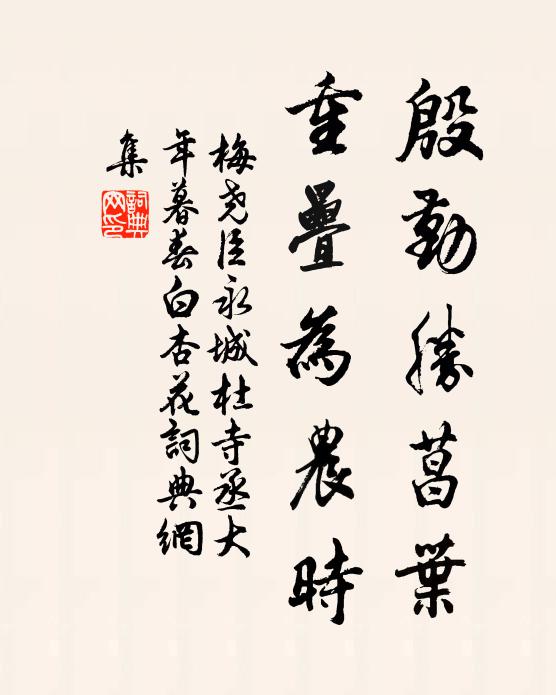 殷勤勝菖葉
重疊為農時
梅堯臣永城杜寺丞大
年暮春白杏花詞典網
集
詞典網印